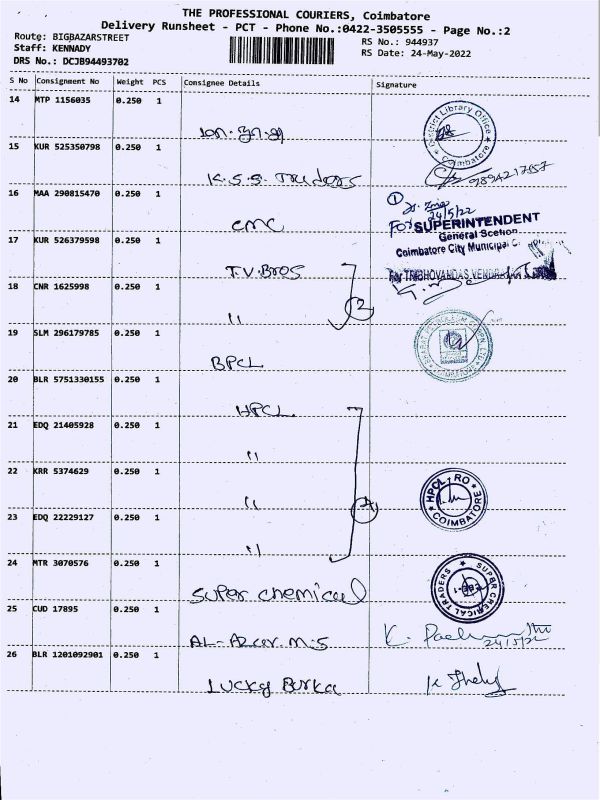 THE PROFESSIONAL COURIERS, Coimbatore
Delivery Runsheet - PCT - Phone No.:0422-3505555 - Page No.:2
Route: BIGBAZARSTREET
RS No.: 944937
Staff: KENNADY
RS Date: 24-May-2022
DRS No.: DCJB94493702
S No Consignment No Weight PCS Consignee Details Signature
14 MTP 1156035 0.250 1
District Library Office
Coimbatore
15 KUR 525350798 0.250 1
K.S.S. Traders 9894217557
16 MAA 290815470 0.250 1
1
24/5/22
CMC For SUPERINTENDENT
General Scetion
Coimbatore City Municipal C
17 KUR 526379598 0.250 1
T.V. Bros For TRIBHOVANDAS
18 CNR 1625998 0.250 1
2
"
19 SLM 296179785 0.250 1
BHARAT PETROLEUM CORPN. LTD
COIMBATORE
BPCL
20 BLR 5751330155 0.250 1
HPCL
21 EDQ 21405928 0.250 1
"
22 KRR 5374629 0.250 1
"
HPCL RO
COIMBATORE
23 EDQ 22229127 0.250 1
4
"
24 MTR 3070576 0.250 1
Super chemical
SUPER CHEMICAL TRADERS
25 CUD 17895 0.250 1
AL-Azar M.S
24/5/22
26 BLR 1201092901 0.250 1
Lucky Burka